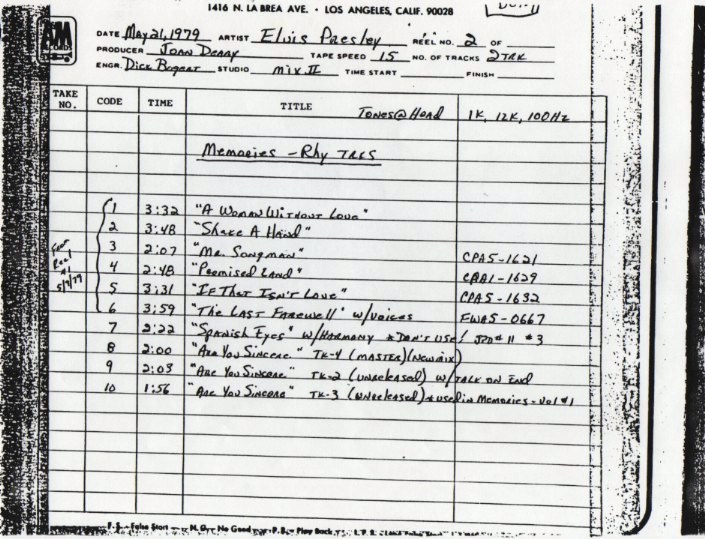 1416 N. LA BREA AVE. • LOS ANGELES, CALIF. 90028
A&M RECORDS
DATE May 21, 1979 ARTIST Elvis Presley REEL NO. 2 OF
PRODUCER Joan Deary TAPE SPEED 15 NO. OF TRACKS 2 TRK
ENGR. Dick Bogert STUDIO mix II TIME START FINISH
TAKE NO. CODE TIME TITLE
Tones @ Head 1K, 12K, 100Hz
Memories - Rhy TRKS
1 3:32 "A Woman Without Love"
2 3:48 "Shake A Hand"
3 2:07 "Mr. Songman" CPA5-1621
4 2:48 "Promised Land" CPA1-1629
5 3:31 "If That Isn't Love" CPA5-1632
6 3:59 "The Last Farewell" w/voices FWA5-0667
From Reel #1 5/9/79
7 2:22 "Spanish Eyes" w/Harmony * Don't Use! #3
8 2:00 "Are You Sincere" TK-4 (master) (New mix)
9 2:03 "Are You Sincere" TK-2 (unreleased) w/talk on end
10 1:56 "Are You Sincere" TK-3 (unreleased) * used in Memories - Vol #1
F.S. - False Start N.G. - No Good P.B. - Play Back